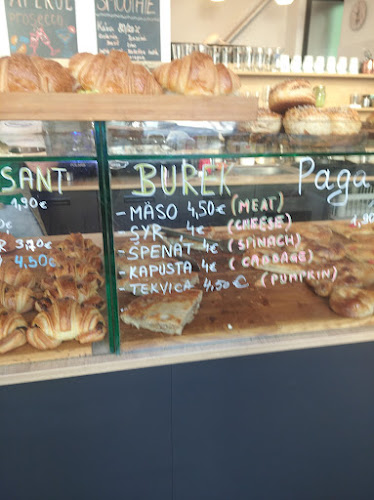 APEROL
PROSECCO
SMOOTHIE
SANT
1,90€
€
3,20€
4,50€
BUREK
- MÄSO 4,50€ (MEAT)
- SYR 4€ (CHEESE)
- ŠPENÁT 4€ (SPINACH)
- KAPUSTA 4€ (CABBAGE)
- TEKVICA 4,50€ (PUMPKIN)
Paga
1,90